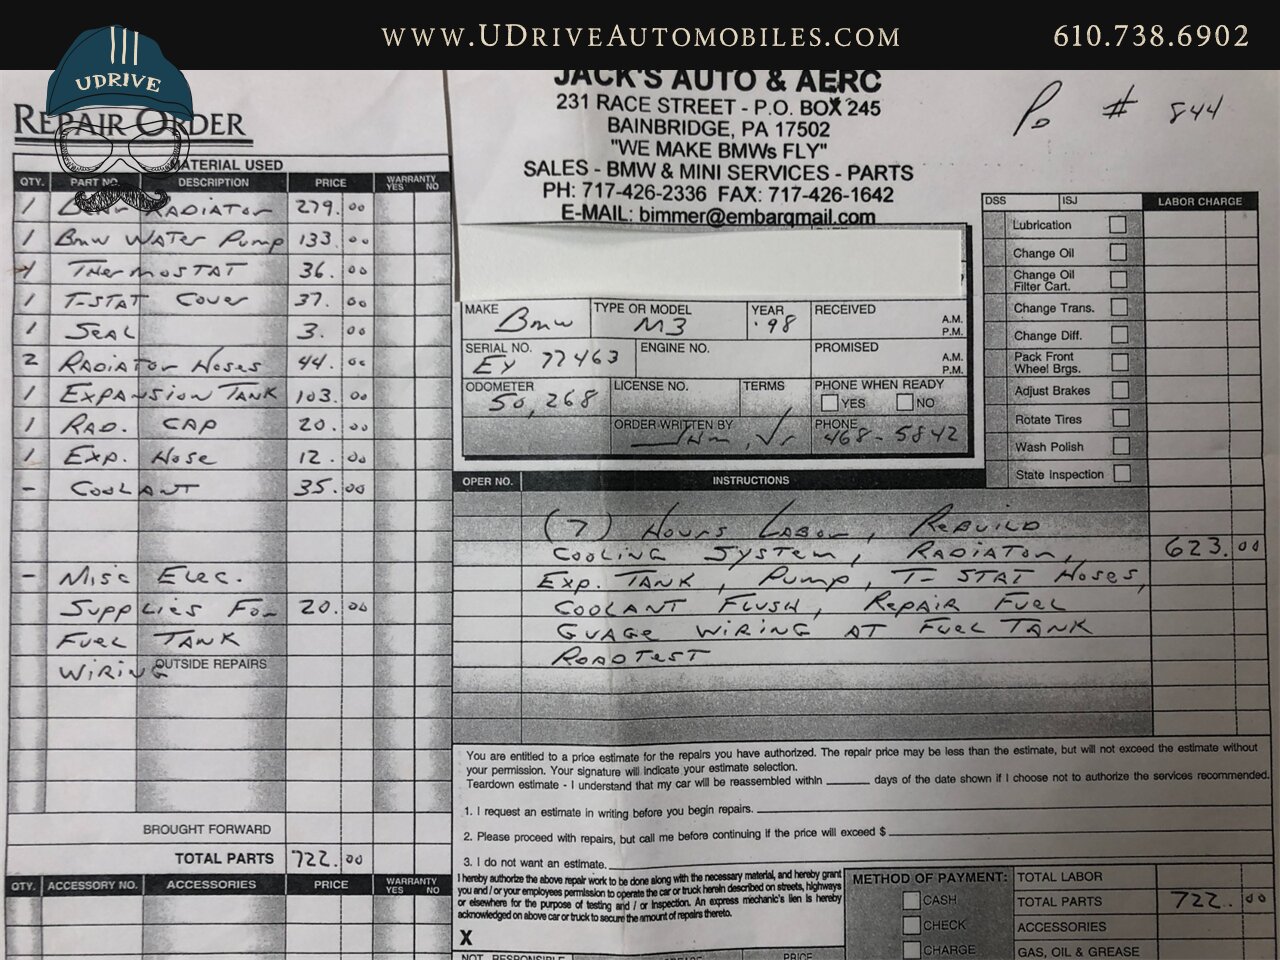 WWW.UDRIVEAUTOMOBILES.COM
610.738.6902
UDRIVE
REPAIR ORDER
JACK'S AUTO & AERC
231 RACE STREET - P.O. BOX 245
BAINBRIDGE, PA 17502
"WE MAKE BMWs FLY"
SALES - BMW & MINI SERVICES - PARTS
PH: 717-426-2336 FAX: 717-426-1642
E-MAIL: bimmer@embarqmail.com
Po # 844
MATERIAL USED
QTY. PART NO. DESCRIPTION PRICE WARRANTY YES NO
1 Bmw RADIATOR 279.00
1 Bmw WATER Pump 133.00
1 THERMOSTAT 36.00
1 T-STAT COVER 37.00
1 SEAL 3.00
2 RADIATOR HOSES 44.00
1 EXPANSION TANK 103.00
1 RAD. CAP 20.00
1 EXP. HOSE 12.00
- COOLANT 35.00
- MISC ELEC.
SUPPLIES FOR 20.00
FUEL TANK
WIRING
OUTSIDE REPAIRS
BROUGHT FORWARD
TOTAL PARTS 722.00
QTY. ACCESSORY NO. ACCESSORIES PRICE WARRANTY YES NO
MAKE Bmw TYPE OR MODEL M3 YEAR '98 RECEIVED A.M. P.M.
SERIAL NO. EY 77463 ENGINE NO. PROMISED A.M. P.M.
ODOMETER 50,268 LICENSE NO. TERMS PHONE WHEN READY YES NO
ORDER WRITTEN BY PHONE 468-5842
DSS ISJ LABOR CHARGE
Lubrication
Change Oil
Change Oil Filter Cart.
Change Trans.
Change Diff.
Pack Front Wheel Brgs.
Adjust Brakes
Rotate Tires
Wash Polish
State Inspection
OPER NO. INSTRUCTIONS
(7) HOURS LABOR, REBUILD
COOLING SYSTEM, RADIATOR, 623.00
EXP. TANK, PUMP, T-STAT HOSES,
COOLANT FLUSH, REPAIR FUEL
GUAGE WIRING AT FUEL TANK
ROADTEST
You are entitled to a price estimate for the repairs you have authorized. The repair price may be less than the estimate, but will not exceed the estimate without
your permission. Your signature will indicate your estimate selection.
Teardown estimate - I understand that my car will be reassembled within ______ days of the date shown if I choose not to authorize the services recommended.
1. I request an estimate in writing before you begin repairs.
2. Please proceed with repairs, but call me before continuing if the price will exceed $
3. I do not want an estimate.
I hereby authorize the above repair work to be done along with the necessary material, and hereby grant
you and / or your employees permission to operate the car or truck herein described on streets, highways
or elsewhere for the purpose of testing and / or inspection. An express mechanic's lien is hereby
acknowledged on above car or truck to secure the amount of repairs thereto.
X
METHOD OF PAYMENT:
CASH
CHECK
CHARGE
TOTAL LABOR
TOTAL PARTS 722.00
ACCESSORIES
GAS, OIL & GREASE
NOT RESPONSIBLE
PRICE